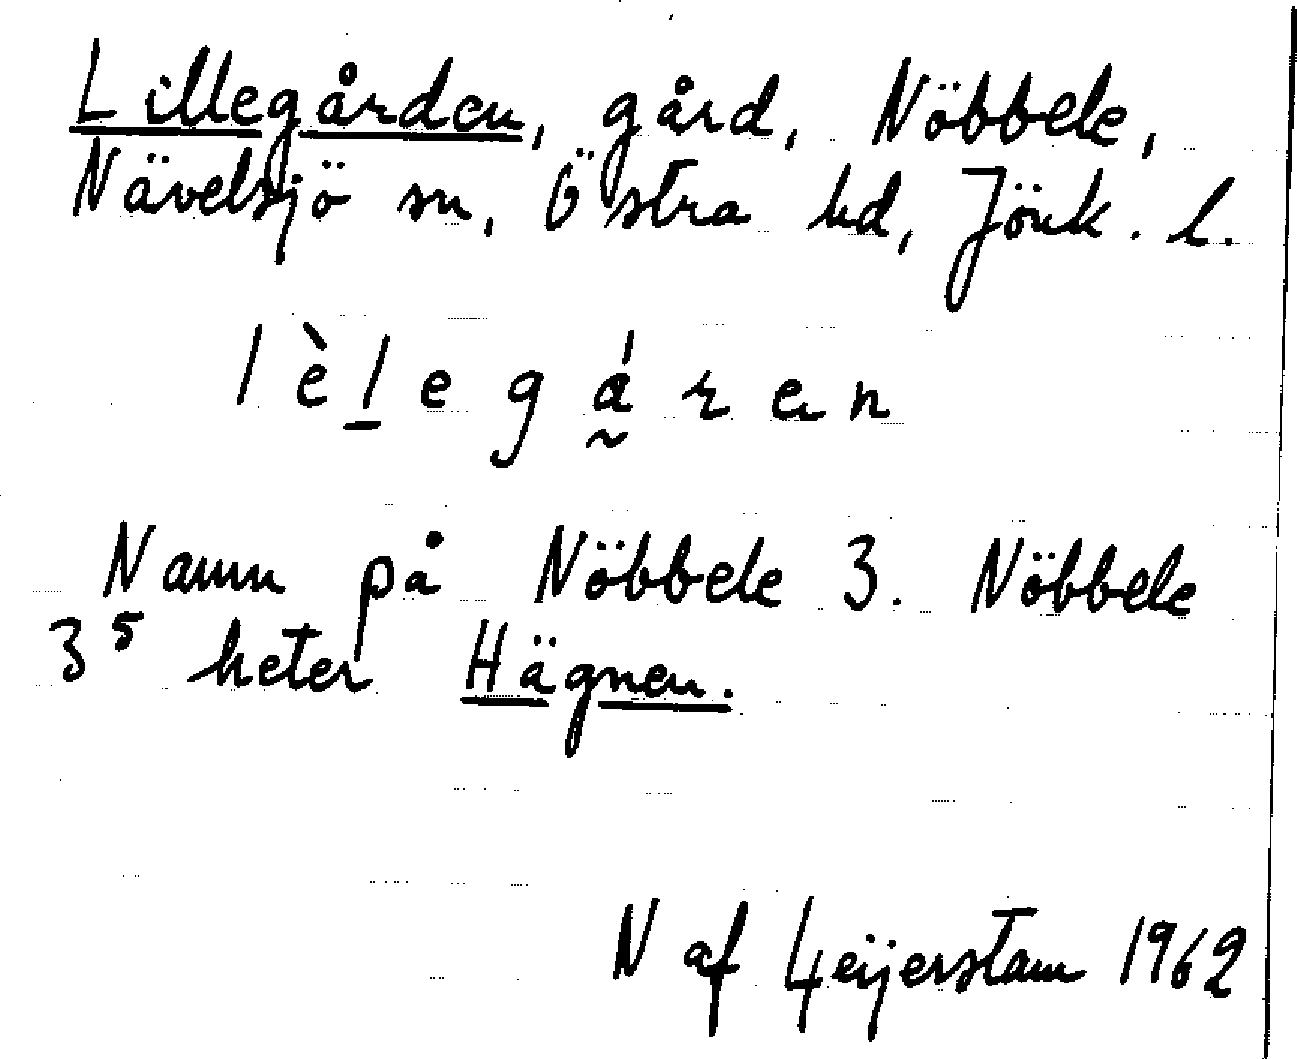 Lillegården, gård, Nöbbele,
Nävelsjö sn, Östra hd, Jönk. l.
lèl̲egá̰ren
Namn på Nöbbele 3. Nöbbele
3⁵ heter Hägnen.
N af Geijerstam 1962